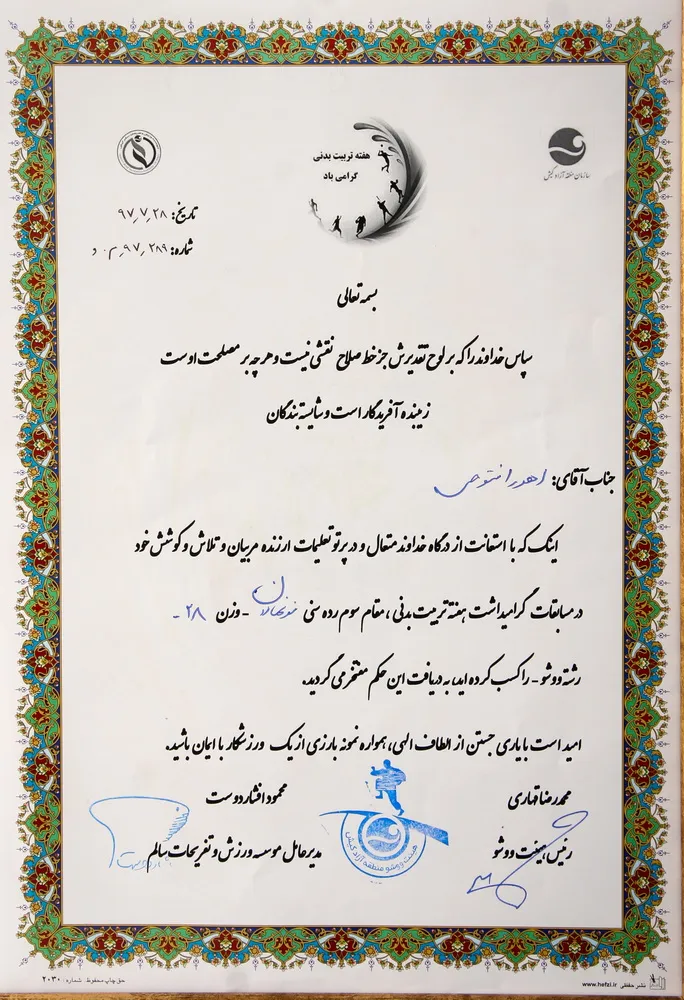 هفته تربیت بدنی
گرامی باد
سازمان منطقه آزاد کیش
تاریخ: ۹۷٫۷٫۲۸
شماره:
بسمه تعالی
سپاس خداوند را که بر لوح تقدیرش جز خط صلاح نقشی نیست و هر چه بر مصلحت اوست
زیبنده آفریدگار است و شایسته بندگان
جناب آقای:
اینک که با استعانت از درگاه خداوند متعال و در پرتو تعلیمات ارزنده مربیان و تلاش و کوشش خود
در مسابقات گرامیداشت هفته تربیت بدنی ، مقام سوم رده سنی نونهالان - وزن ۲۸ -
رشته ووشو - را کسب کرده اید، به دریافت این حکم مفتخر می گردید.
امید است با یاری جستن از الطاف الهی، همواره نمونه بارزی از یک ورزشکار با ایمان باشید.
محمدرضا قهاری
رئیس هیئت ووشو
محمود افشاردوست
مدیرعامل موسسه ورزش و تفریحات سالم
هیئت ووشو منطقه آزاد کیش
نشر حفظی www.hefzi.ir
حق چاپ محفوظ. شماره: ۲۰۳۰